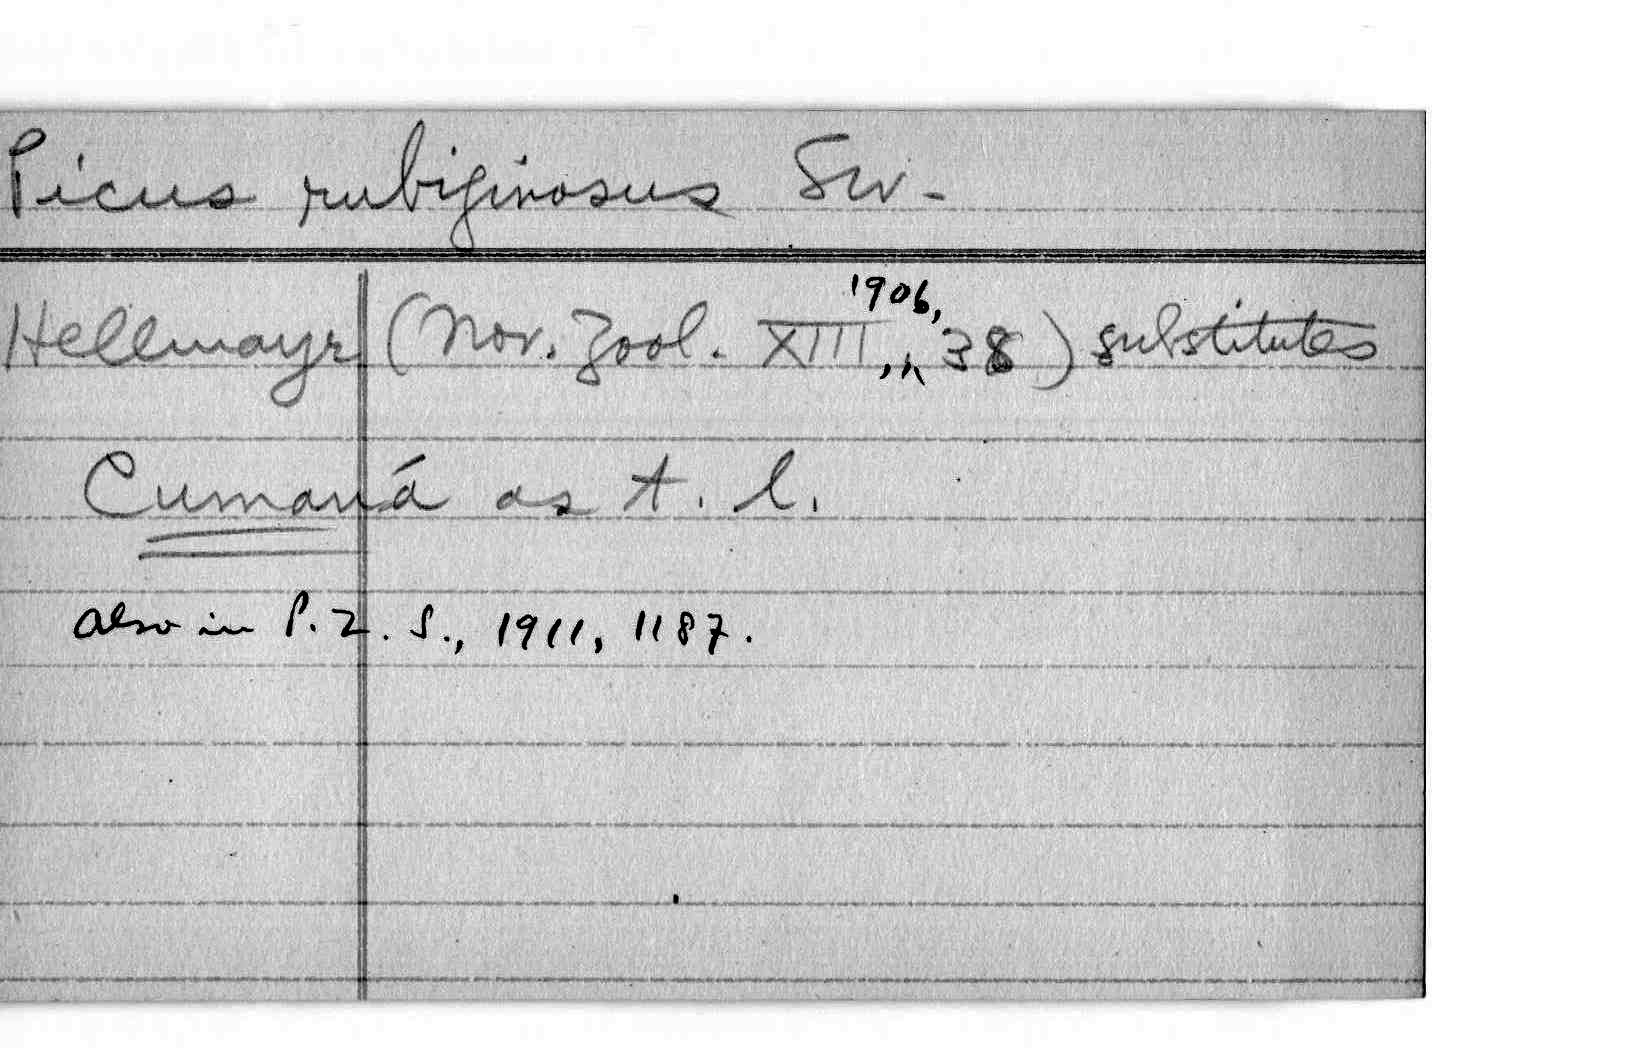 Picus rubiginosus Sw.
Hellmayr (Nov. Zool. XIII, 1906, 38) substitutes
Cumaná as t. l.
also in P. Z. S., 1911, 1187.